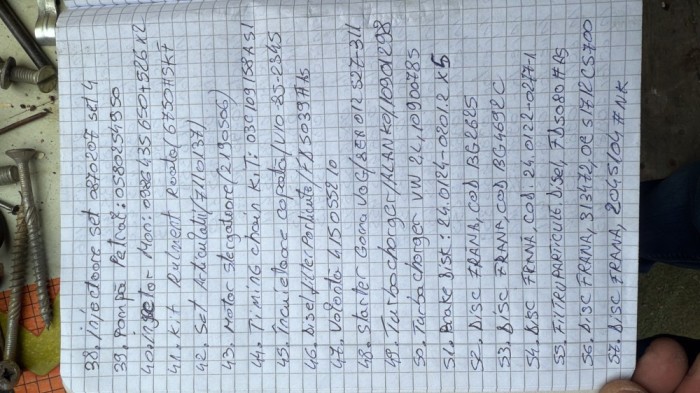 38. injectoare set 0870207 set 4
39. Pompa Petrol: 0580254950
40. injector Man: 0986435650+526 x2
41. Kit Rulment Roata(6750+SKF
42. Set Articulatii(71110137)
43. Motor stergatoare(2190506)
44. Timing chain Kit: 03C109158AS1
45. Inchietoare capota(1110-85-2345
46.
47. Volanta 415055210
48. Starter Goma VOG/SER 012 527-311
49. Turbocharger/ALANKO/10901298
50. Turbocharger VW 2L, 10900785
51. Brake Disc: 24.0124-0201.2 x5
52. Disc FRANA, cod BG2625
53. Disc FRANA, cod BG4692C
54. Disc FRANA, cod. 24.0122-0277-1
55. FILTRU PARTICULE Disel,
56. DISC FRANA, 313472, 09.5712CS700
57. DISC FRANA, 2045104